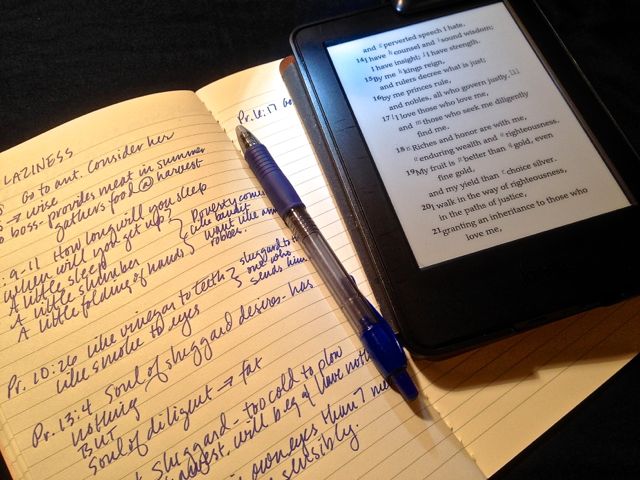 LAZINESS
Go to ant. Consider her
→ wise
boss - provides meat in summer
gathers food @ harvest
9-11 How long will you sleep
when will you get up?
A little sleep
A little slumber
A little folding of hands
Poverty comes
like bandit
want like
robber.
Pr. 10:26 like vinegar to teeth
like smoke to eyes
sluggard to
one who
sends him
Pr. 13:4 Soul of sluggard desires - has
nothing
BUT
Soul of diligent → fat
sluggard - too cold to plow
harvest, will beg & have
own eyes than 7
sensibly.
Pr. 6:17
and perverted speech I hate.
14 I have counsel and sound wisdom;
I have insight; I have strength.
15 By me kings reign,
and rulers decree what is just;
16 by me princes rule,
and nobles, all who govern justly.
17 I love those who love me,
and those who seek me diligently
find me.
18 Riches and honor are with me,
enduring wealth and righteousness.
19 My fruit is better than gold, even
fine gold,
and my yield than choice silver.
20 I walk in the way of righteousness,
in the paths of justice,
21 granting an inheritance to those who
love me,